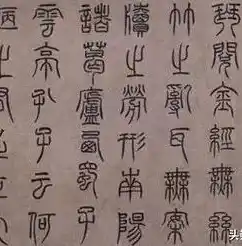 琴閱金經無絲
竹之亂耳無案
牘之勞形南陽
諸葛廬西蜀子
雲亭孔子云何
陋之